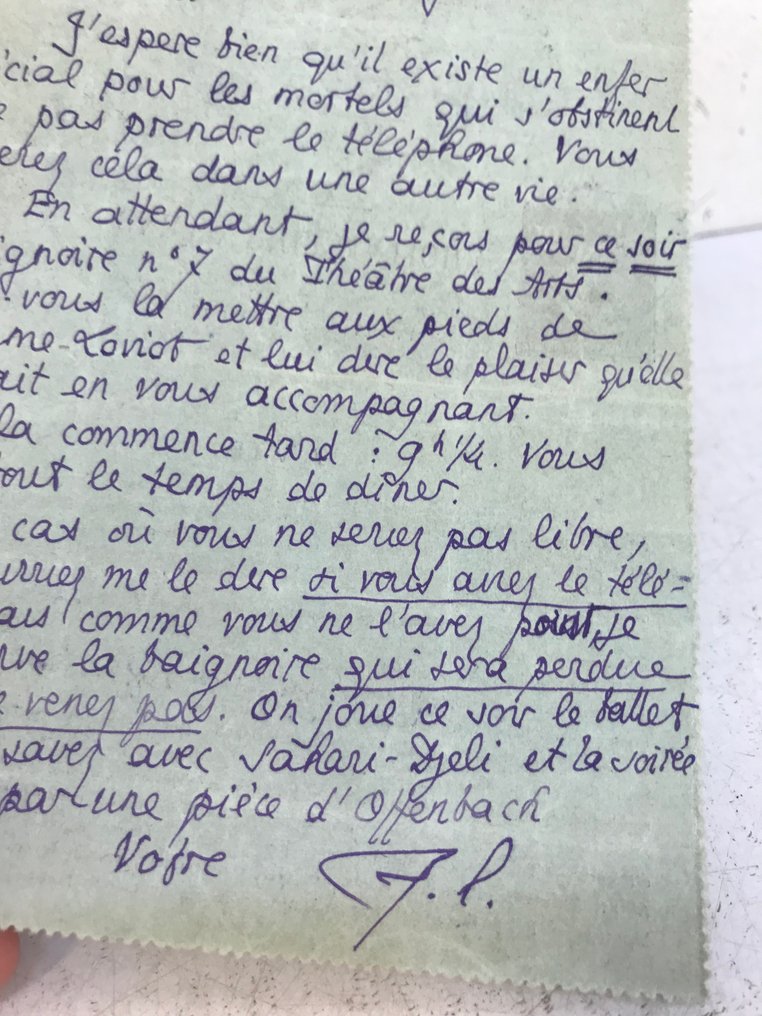 J'espere bien qu'il existe un enfer
cial pour les mortels qui s'obstinent
pas prendre le téléphone. Vous
erez cela dans une autre vie.
En attendant, je reçois pour ce soir
ignoire n° 7 du Théâtre des Arts.
vous la mettre aux pieds de
me-Loviot et lui dire le plaisir qu'elle
ait en vous accompagnant.
la commence tard : 9h 1/4. Vous
tout le temps de dîner.
cas où vous ne seriez pas libre,
urriez me le dire si vous aviez le télé=
ais comme vous ne l'avez point, je
rve la baignoire qui sera perdue
venez pas. On joue ce soir le ballet
savez avec Sahari-Djeli et la soirée
par une pièce d'Offenbach
Votre